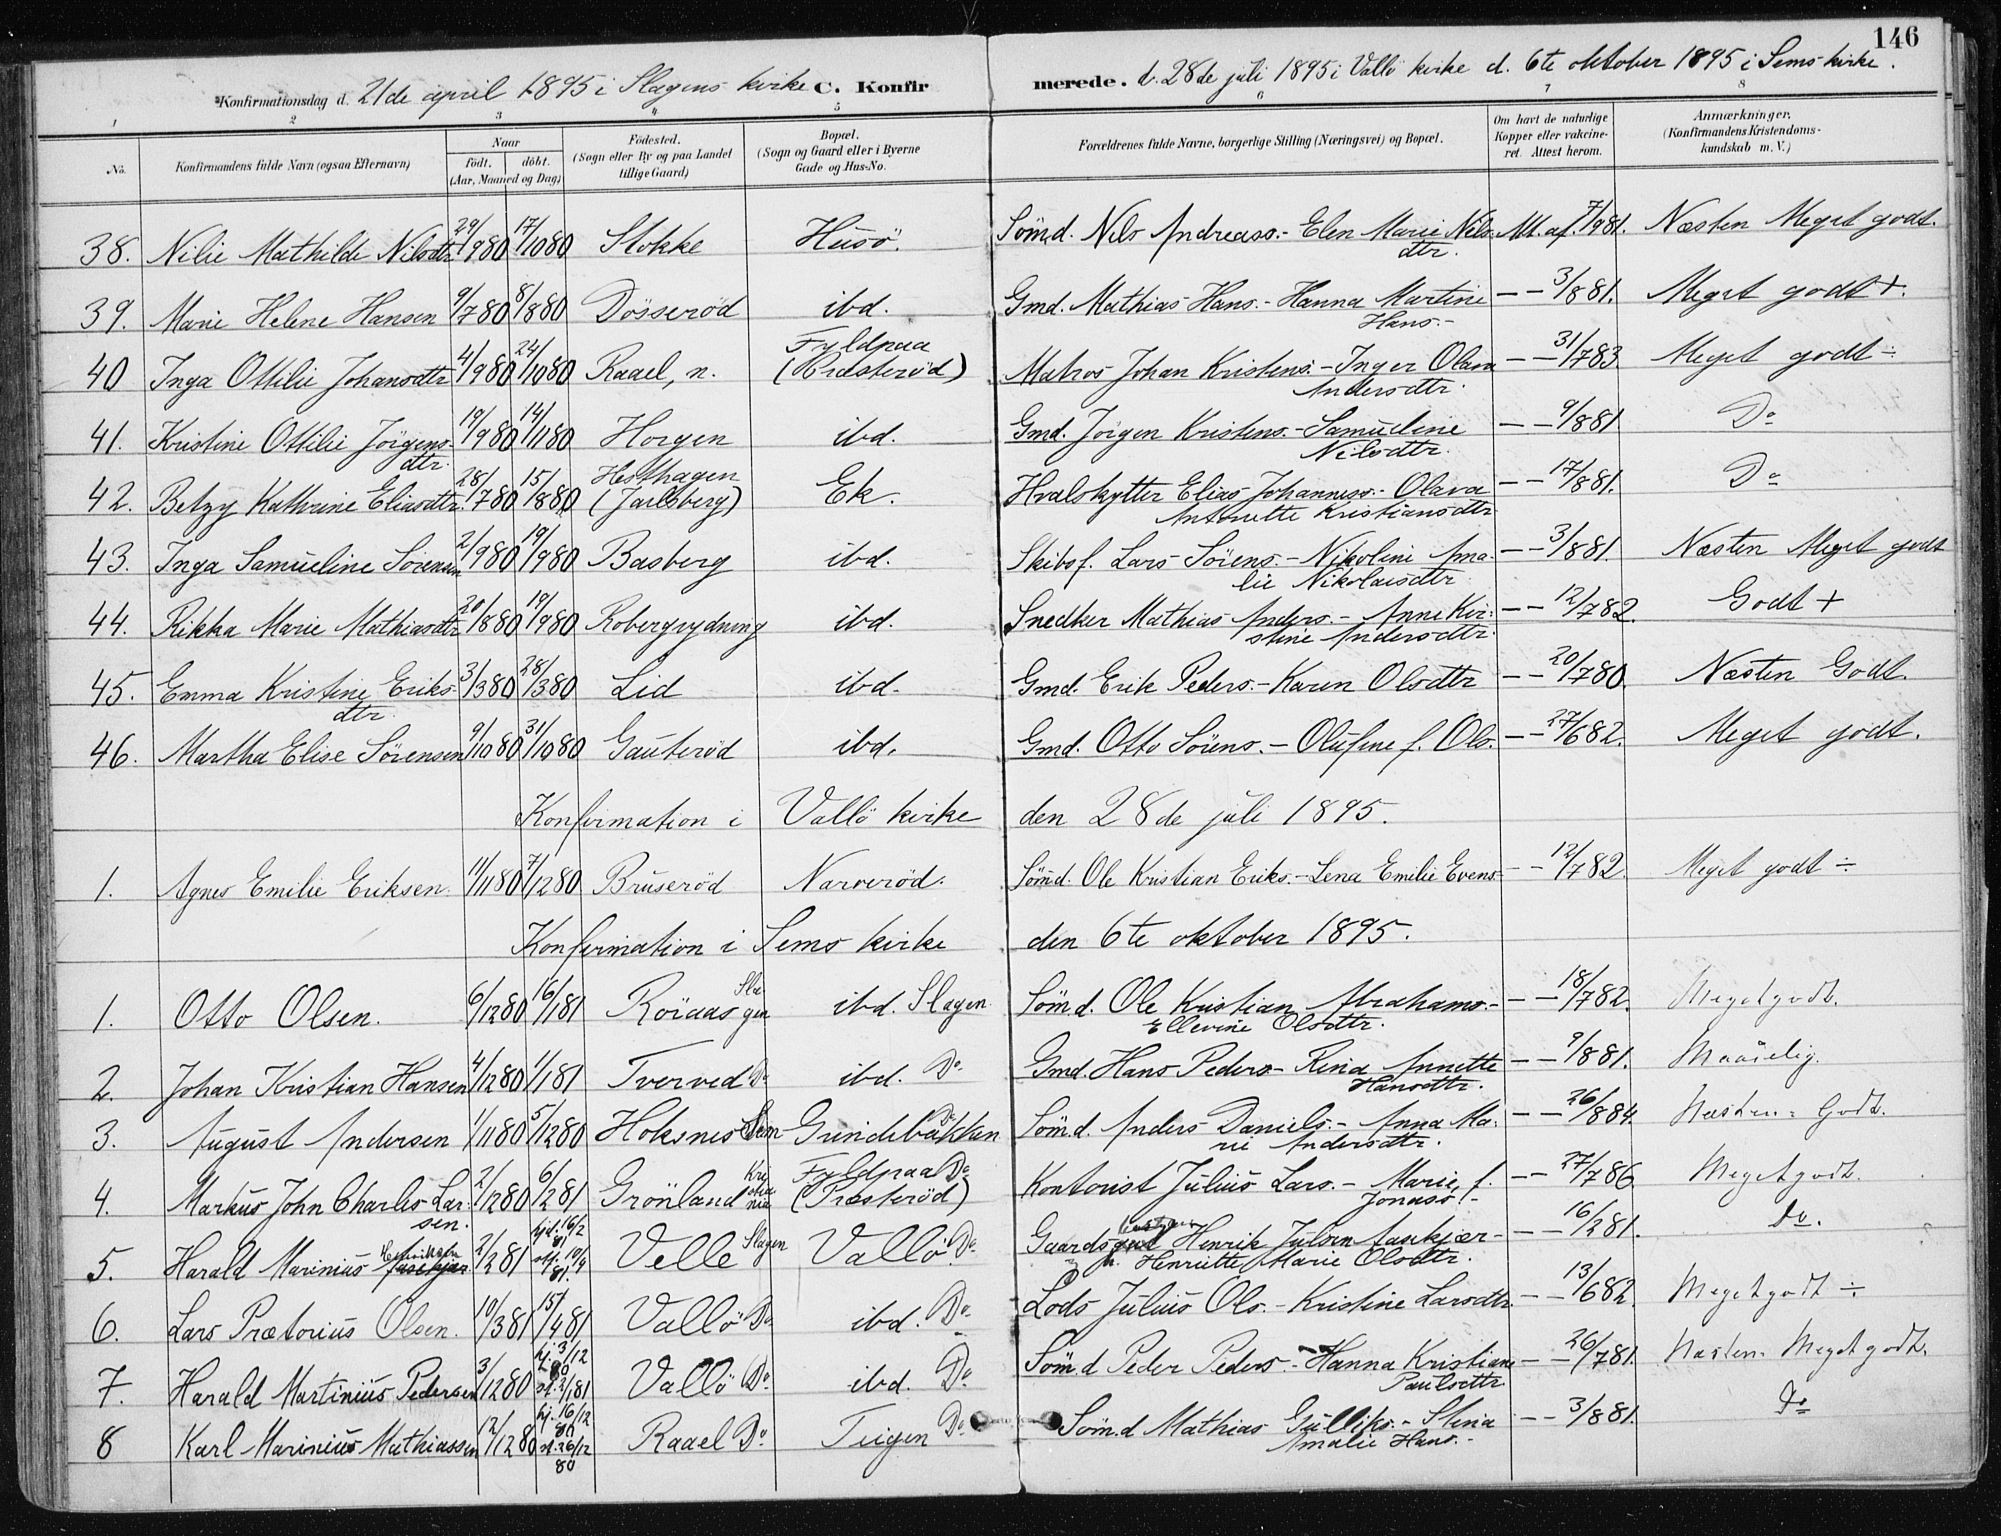 146
Konfirmationsdag d. 21de april 1895 i Slagens kirke C. Konfir merede. d. 28de juli 1895 i Vallö kirke d. 6te oktober 1895 i Sems kirke.
1 2 3 4 5 6 7 8
No. Konfirmandens fulde Navn (ogsaa Efternavn) Naar født. døbt. (Aar, Maaned og Dag) Fødested. (Sogn eller By og paa Landet tillige Gaard) Bopæl. (Sogn og Gaard eller i Byerne Gade og Hus-No. Forældrenes fulde Navne, borgerlige Stilling (Næringsvei) og Bopæl. Om havt de naturlige Kopper eller vakcineret. Attest herom. Anmærkninger. (Konfirmandens Kristendomskundskab m. V.)
38. Nilie Mathilde Nilsdtr 29/980 17/1080 Stokke Husö. Sömd. Nils Andreass. - Elen Marie Nilsdtr. Att. af 7/981. Næsten Meget godt.
39. Marie Helene Hansen 9/780 8/880 Dösseröd ibd. Gmd. Mathias Hans. - Hanna Martine Hans. - - - 3/881. Meget godt +.
40 Inga Ottilie Johansdtr 4/980 24/1080 Raael, n. Fyldpaa (Præsteröd) Matros Johan Kristens. - Inger Olava Andersdtr. - - 31/783. Meget godt ÷
41. Kristine Ottilie Jörgensdtr. 19/980 14/1180 Horgen ibd. Gmd. Jörgen Kristens. - Samueline Nilsdtr. - - 9/881 Do
42. Betzy Kathrine Eliasdtr. 28/780 15/880 Hesthagen (Jarlsberg) Ek. Hvalskytter Elias Johanness. - Olava Antonette Kristiansdtr - - 17/881. Do
43. Inga Samueline Sörensen 2/980 19/980 Basberg ibd. Skibsf. Lars Sörens. - Nikoline Amalie Nikolaisdtr - - 3/881. Næsten Meget godt
44. Rikka Marie Mathiasdtr 20/880 19/980 Robergrydning ibd. Snedker Mathias Anders. - Anne Kirstine Andersdtr. - - 12/782. Godt +
45. Emma Kristine Eriksdtr. 3/380 28/380 Lid ibd. Gmd. Erik Peders. - Karen Olsdtr - - 20/780. Næsten Godt.
46. Martha Elise Sörensen 9/1080 31/1080 Gauteröd ibd. Gmd. Otto Sörens. - Olufine f. Ols. - - 27/682. Meget godt.
Konfirmation i Vallö kirke den 28de juli 1895.
1. Agnes Emilie Eriksen. 11/1180 7/1280 Bruseröd Narveröd. Sömd. Ole Kristian Eriks. - Lena Emilie Evens. - - 12/782. Meget godt ÷
Konfirmation i Sems kirke den 6te oktober 1895.
1. Otto Olsen. 6/1280 16/181 Roiaas Slagen ibd. Slagen Sömd. Ole Kristian Abrahams. - Ellevine Olsdtr. - - 18/782. Meget godt.
2. Johan Kristian Hansen 4/1280 1/181 Tverved Do ibd. Do Gmd. Hans Peders. - Rina Annette Hansdtr. - - 9/881. Maadelig.
3. August Andersen 1/1180 5/1280 Hoksnes Sem Grindebakken Do Sömd. Anders Daniels. - Anna Marie Andersdtr. - - 26/884. Næsten Godt.
4. Markus John Charles Larsen. 2/1280 6/281 Grönland Kristiania Fyldpaa Do (Præsteröd) Kontorist Julius Lars. - Marie, f. Jonass. - - - 27/786 Meget godt.
5. Harald Marinius Henriksen 2/281 hjd. 16/2 81. stf. 10/4 81. Velle Slagen Vallö Do Gaards Henrik Julsen Aaskjær - Henriette Marie Olsdtr. - - 16/281. Do.
6. Lars Prætorius Olsen. 10/381 15/481 Vallö Do ibd. Do Lods Julius Ols. - Kristine Larsdtr. - - 13/682. Meget godt ÷
7. Harald Martinius Pedersen 3/1280 hj. 3/12 80 st. 2/181 Vallö Do ibd. Do Sömd Peder Peders. - Hanna Kristiane Paulsdtr. - - 26/781. Næsten Meget godt.
8 Karl Marinius Mathiassen 12/1280 hj. 16/12 80 st. 26/12 80 Raael Do Teigen Do Sömd Mathias Gulliks. - Stina Amalie Hans. - - - 3/881. Do